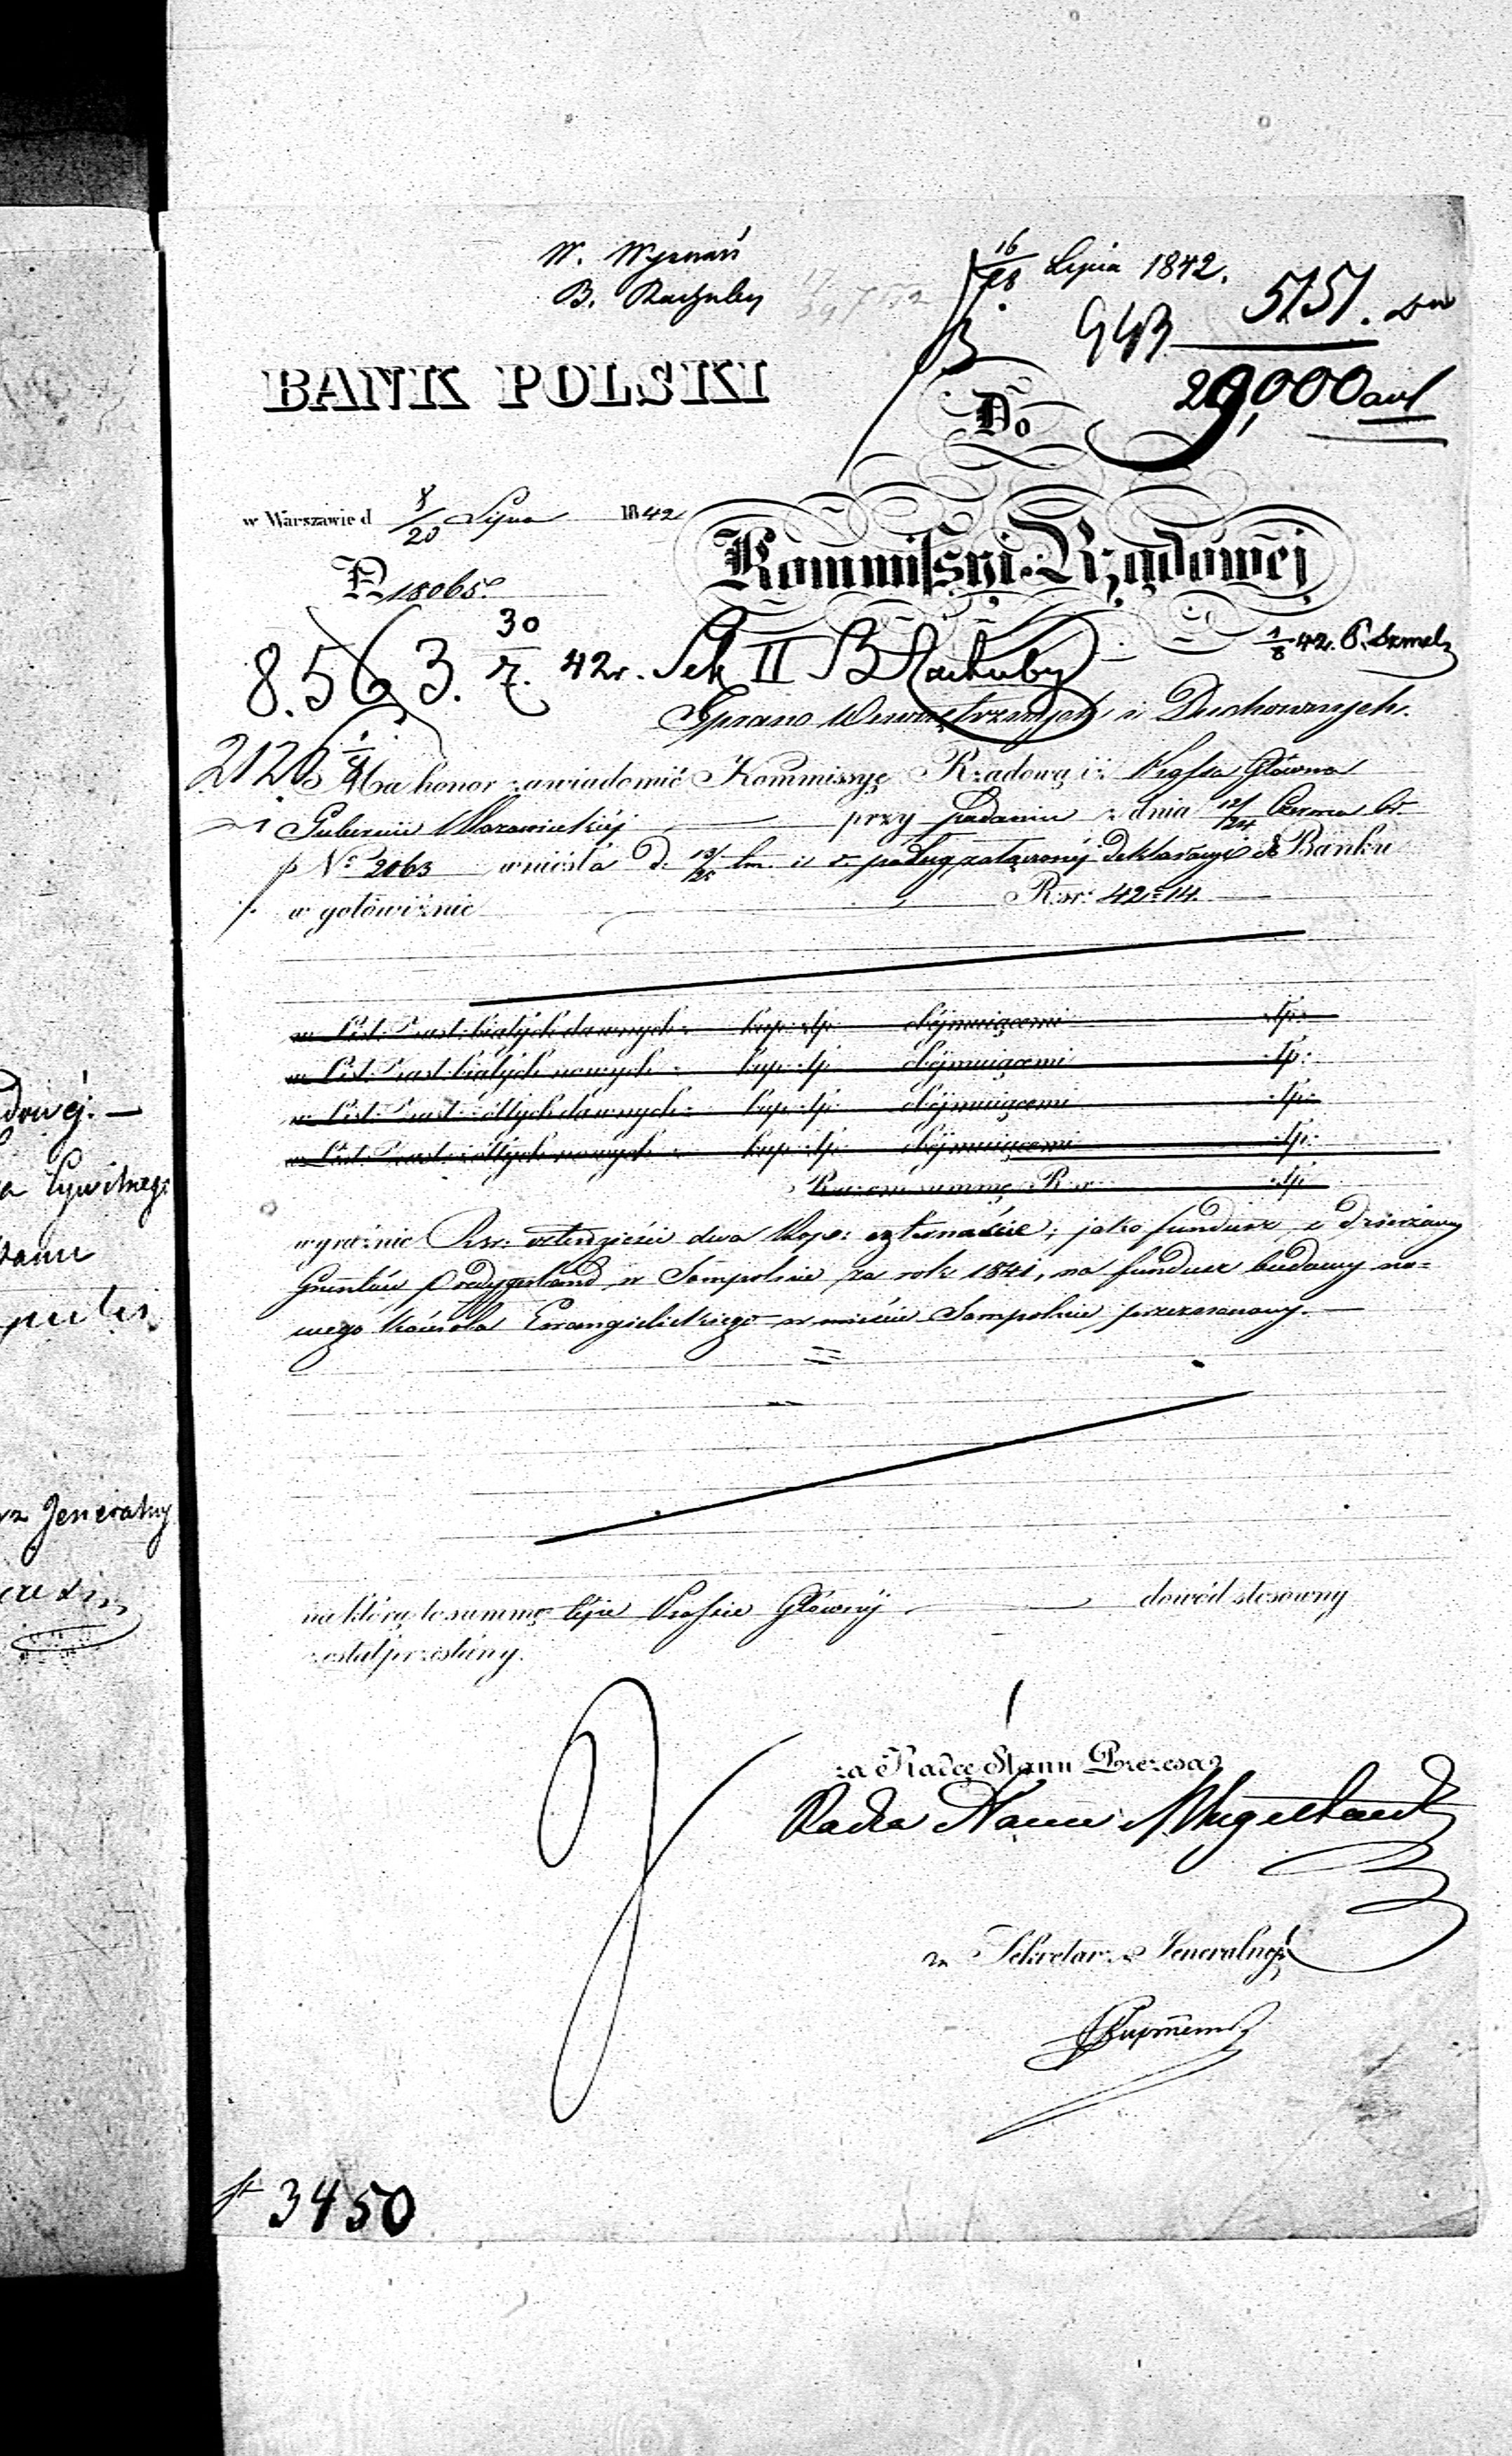 W. Wyznań
B. Rachuby
16/28 Lipca 1842.
5151.
29,000
BANK POLSKI
Do
w Warszawie d 8/20 Lipca 1842
N 18065.
Kommissyi Rządowéj
8.563. 30/7. 42r. Sek II B Rachuby
1/8 42.
Spraw Wewnętrznych i Duchownych.
2120
Ma honor zawiadomić Kommissyę Rządową iż Kassa Główna
Gubernii Mazowieckiéj przy podaniu z dnia 12/24 Czerwca br.
p No 2063 wniosła d. 13/25 tm. i r. podług załączonéj deklaracyi do Banku
w gotowiźnie Rsr: 42 14.
w List. Zast. białych dawnych kup: złp: obéjmuiącemi złp:
w List. Zast. białych nowych kup: złp: obéjmuiącemi złp:
w List. Zast. żółtych dawnych kup: złp: obéjmuiącemi złp:
w List. Zast. żółtych nowych kup: złp: obéjmuiącemi złp:
Razem summę Rsr złp:
wyraźnie Rsr. czterdzieści dwa kop: czternaście; jako fundusz z dzierżawy
Gruntów Pradygerland w Sompolnie za rok 1841, na fundusz budowy no=
wego kościoła Ewangielickiego w mieście Sompolnie przeznaczony.
na którą to summę téjże Kassie Głównéj dowód stosowny
został przesłany.
za Radcę Stanu Prezesa
Radca Stanu
za Sekretarza Jeneralnego
3450